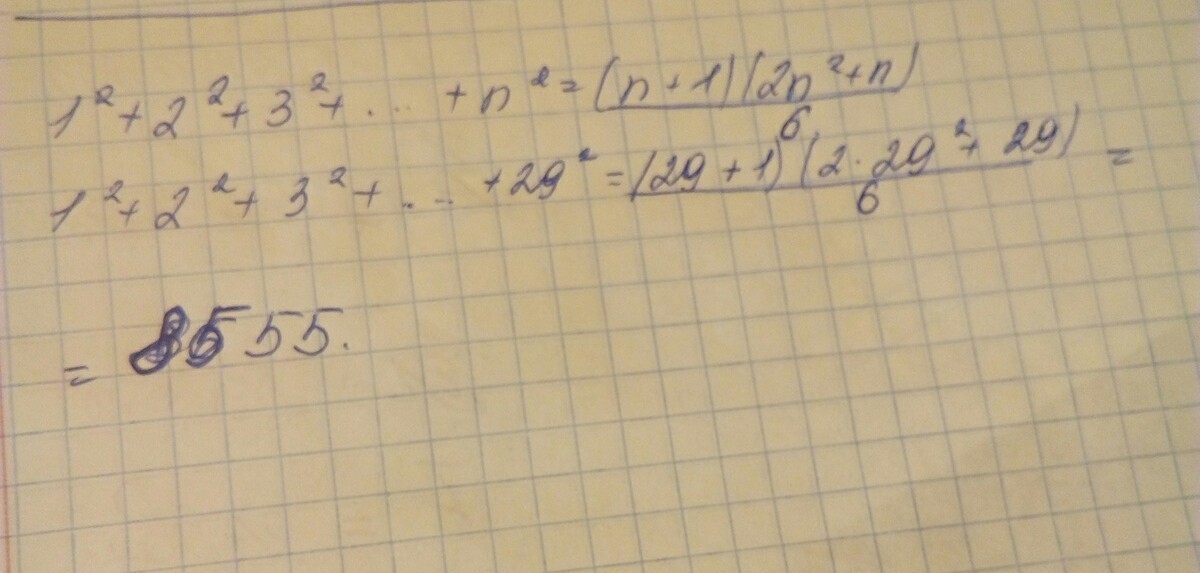 1² + 2² + 3² + ... + n² = (n + 1)(2n² + n) / 6
1² + 2² + 3² + ... + 29² = (29 + 1)(2 · 29² + 29) / 6 =
= 8555.